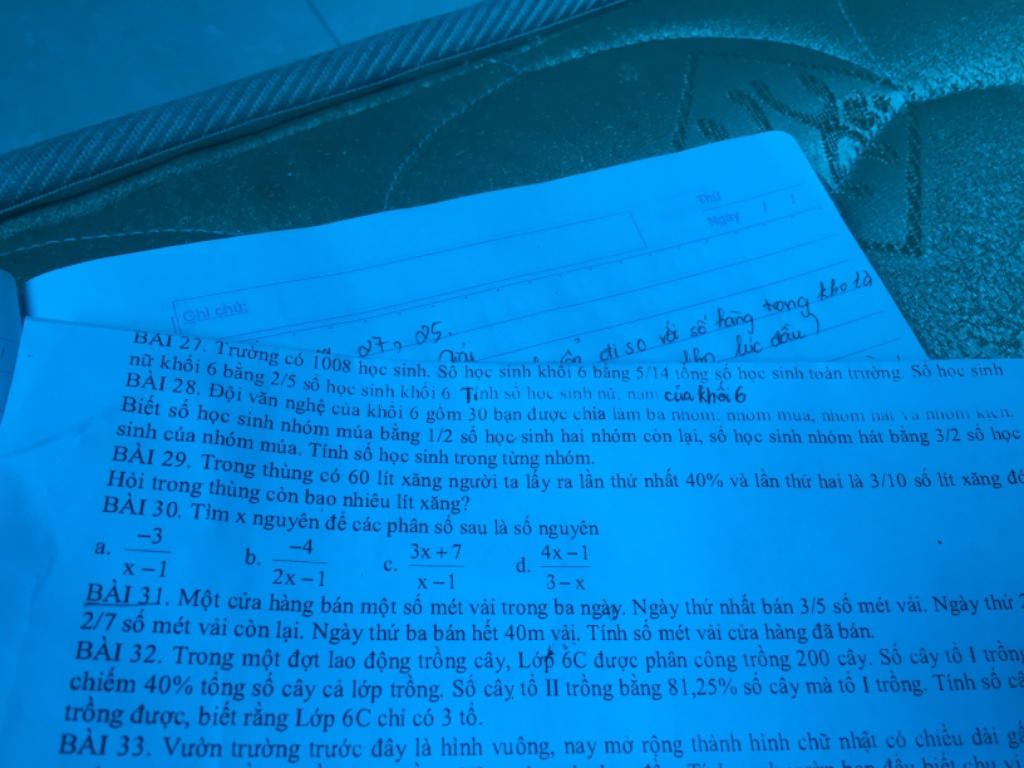 Thứ
Ngày / /
Ghi chú:
27, 25.
đi so với số hàng trong kho là
lúc đầu)
BÀI 27. Trường có 1008 học sinh. Số học sinh khối 6 bằng 5/14 tổng số học sinh toàn trường. Số học sinh
nữ khối 6 bằng 2/5 số học sinh khối 6. Tính số học sinh nữ, nam của khối 6
BÀI 28. Đội văn nghệ của khối 6 gồm 30 bạn được chia làm ba nhóm: nhóm múa, nhóm hát và nhóm kịch.
Biết số học sinh nhóm múa bằng 1/2 số học sinh hai nhóm còn lại, số học sinh nhóm hát bằng 3/2 số học
sinh của nhóm múa. Tính số học sinh trong từng nhóm.
BÀI 29. Trong thùng có 60 lít xăng người ta lấy ra lần thứ nhất 40% và lần thứ hai là 3/10 số lít xăng
Hỏi trong thùng còn bao nhiêu lít xăng?
BÀI 30. Tìm x nguyên để các phân số sau là số nguyên
a. -3/(x-1) b. -4/(2x-1) c. (3x+7)/(x-1) d. (4x-1)/(3-x)
BÀI 31. Một cửa hàng bán một số mét vải trong ba ngày. Ngày thứ nhất bán 3/5 số mét vải. Ngày thứ
2/7 số mét vải còn lại. Ngày thứ ba bán hết 40m vải. Tính số mét vải cửa hàng đã bán.
BÀI 32. Trong một đợt lao động trồng cây, Lớp 6C được phân công trồng 200 cây. Số cây tổ I trồng
chiếm 40% tổng số cây cả lớp trồng. Số cây tổ II trồng bằng 81,25% số cây mà tổ I trồng. Tính số
trồng được, biết rằng Lớp 6C chỉ có 3 tổ.
BÀI 33. Vườn trường trước đây là hình vuông, nay mở rộng thành hình chữ nhật có chiều dài